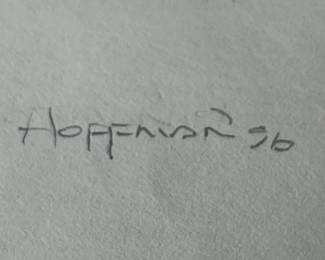 Hoffman 96